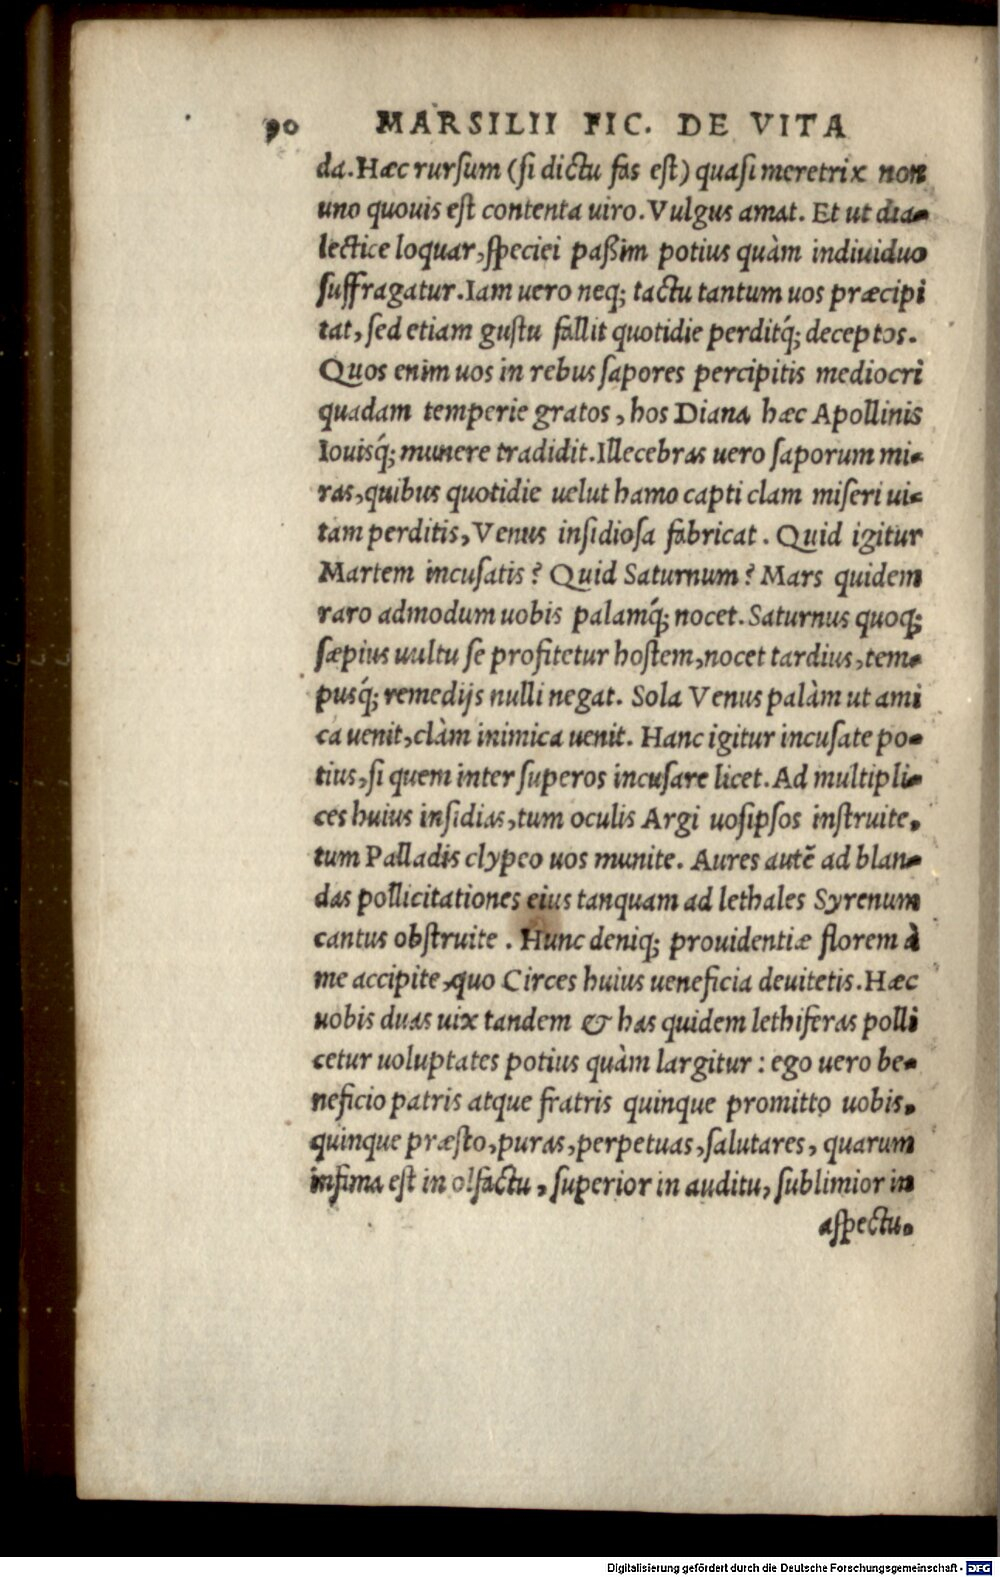 90 MARSILII FIC. DE VITA
da. Hæc rursum (si dictu fas est) quasi meretrix non
uno quouis est contenta uiro. Vulgus amat. Et ut dia-
lectice loquar, speciei paßim potius quàm indiuiduo
suffragatur. Iam uero neq; tactu tantum uos præcipi
tat, sed etiam gustu fallit quotidie perditq́; deceptos.
Quos enim uos in rebus sapores percipitis mediocri
quadam temperie gratos, hos Diana hæc Apollinis
Iouisq́; munere tradidit. Illecebras uero saporum mi-
ras, quibus quotidie uelut hamo capti clam miseri ui-
tam perditis, Venus insidiosa fabricat. Quid igitur
Martem incusatis? Quid Saturnum? Mars quidem
raro admodum uobis palamq́; nocet. Saturnus quoq;
sæpius uultu se profitetur hostem, nocet tardius, tem-
pusq́; remedijs nulli negat. Sola Venus palàm ut ami
ca uenit, clàm inimica uenit. Hanc igitur incusate po-
tius, si quem inter superos incusare licet. Ad multipli-
ces huius insidias, tum oculis Argi uosipsos instruite,
tum Palladis clypeo uos munite. Aures autē ad blan-
das pollicitationes eius tanquam ad lethales Syrenum
cantus obstruite. Hunc deniq; prouidentiæ florem à
me accipite, quo Circes huius ueneficia deuitetis. Hæc
uobis duas uix tandem & has quidem lethiferas polli
cetur uoluptates potius quàm largitur: ego uero be-
neficio patris atque fratris quinque promitto uobis,
quinque præsto, puras, perpetuas, salutares, quarum
infima est in olfactu, superior in auditu, sublimior in
aspectu.
Digitalisierung gefördert durch die Deutsche Forschungsgemeinschaft - DFG